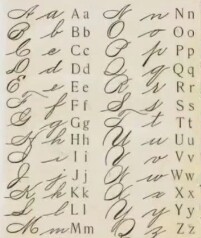 A a Aa N n Nn
B b Bb O o Oo
C c Cc P p Pp
D d Dd Q q Qq
E e Ee R r Rr
F f Ff S s Ss
G g Gg T t Tt
H h Hh U u Uu
I i Ii V v Vv
J j Jj W w Ww
K k Kk X x Xx
L l Ll Y y Yy
M m Mm Z z Zz